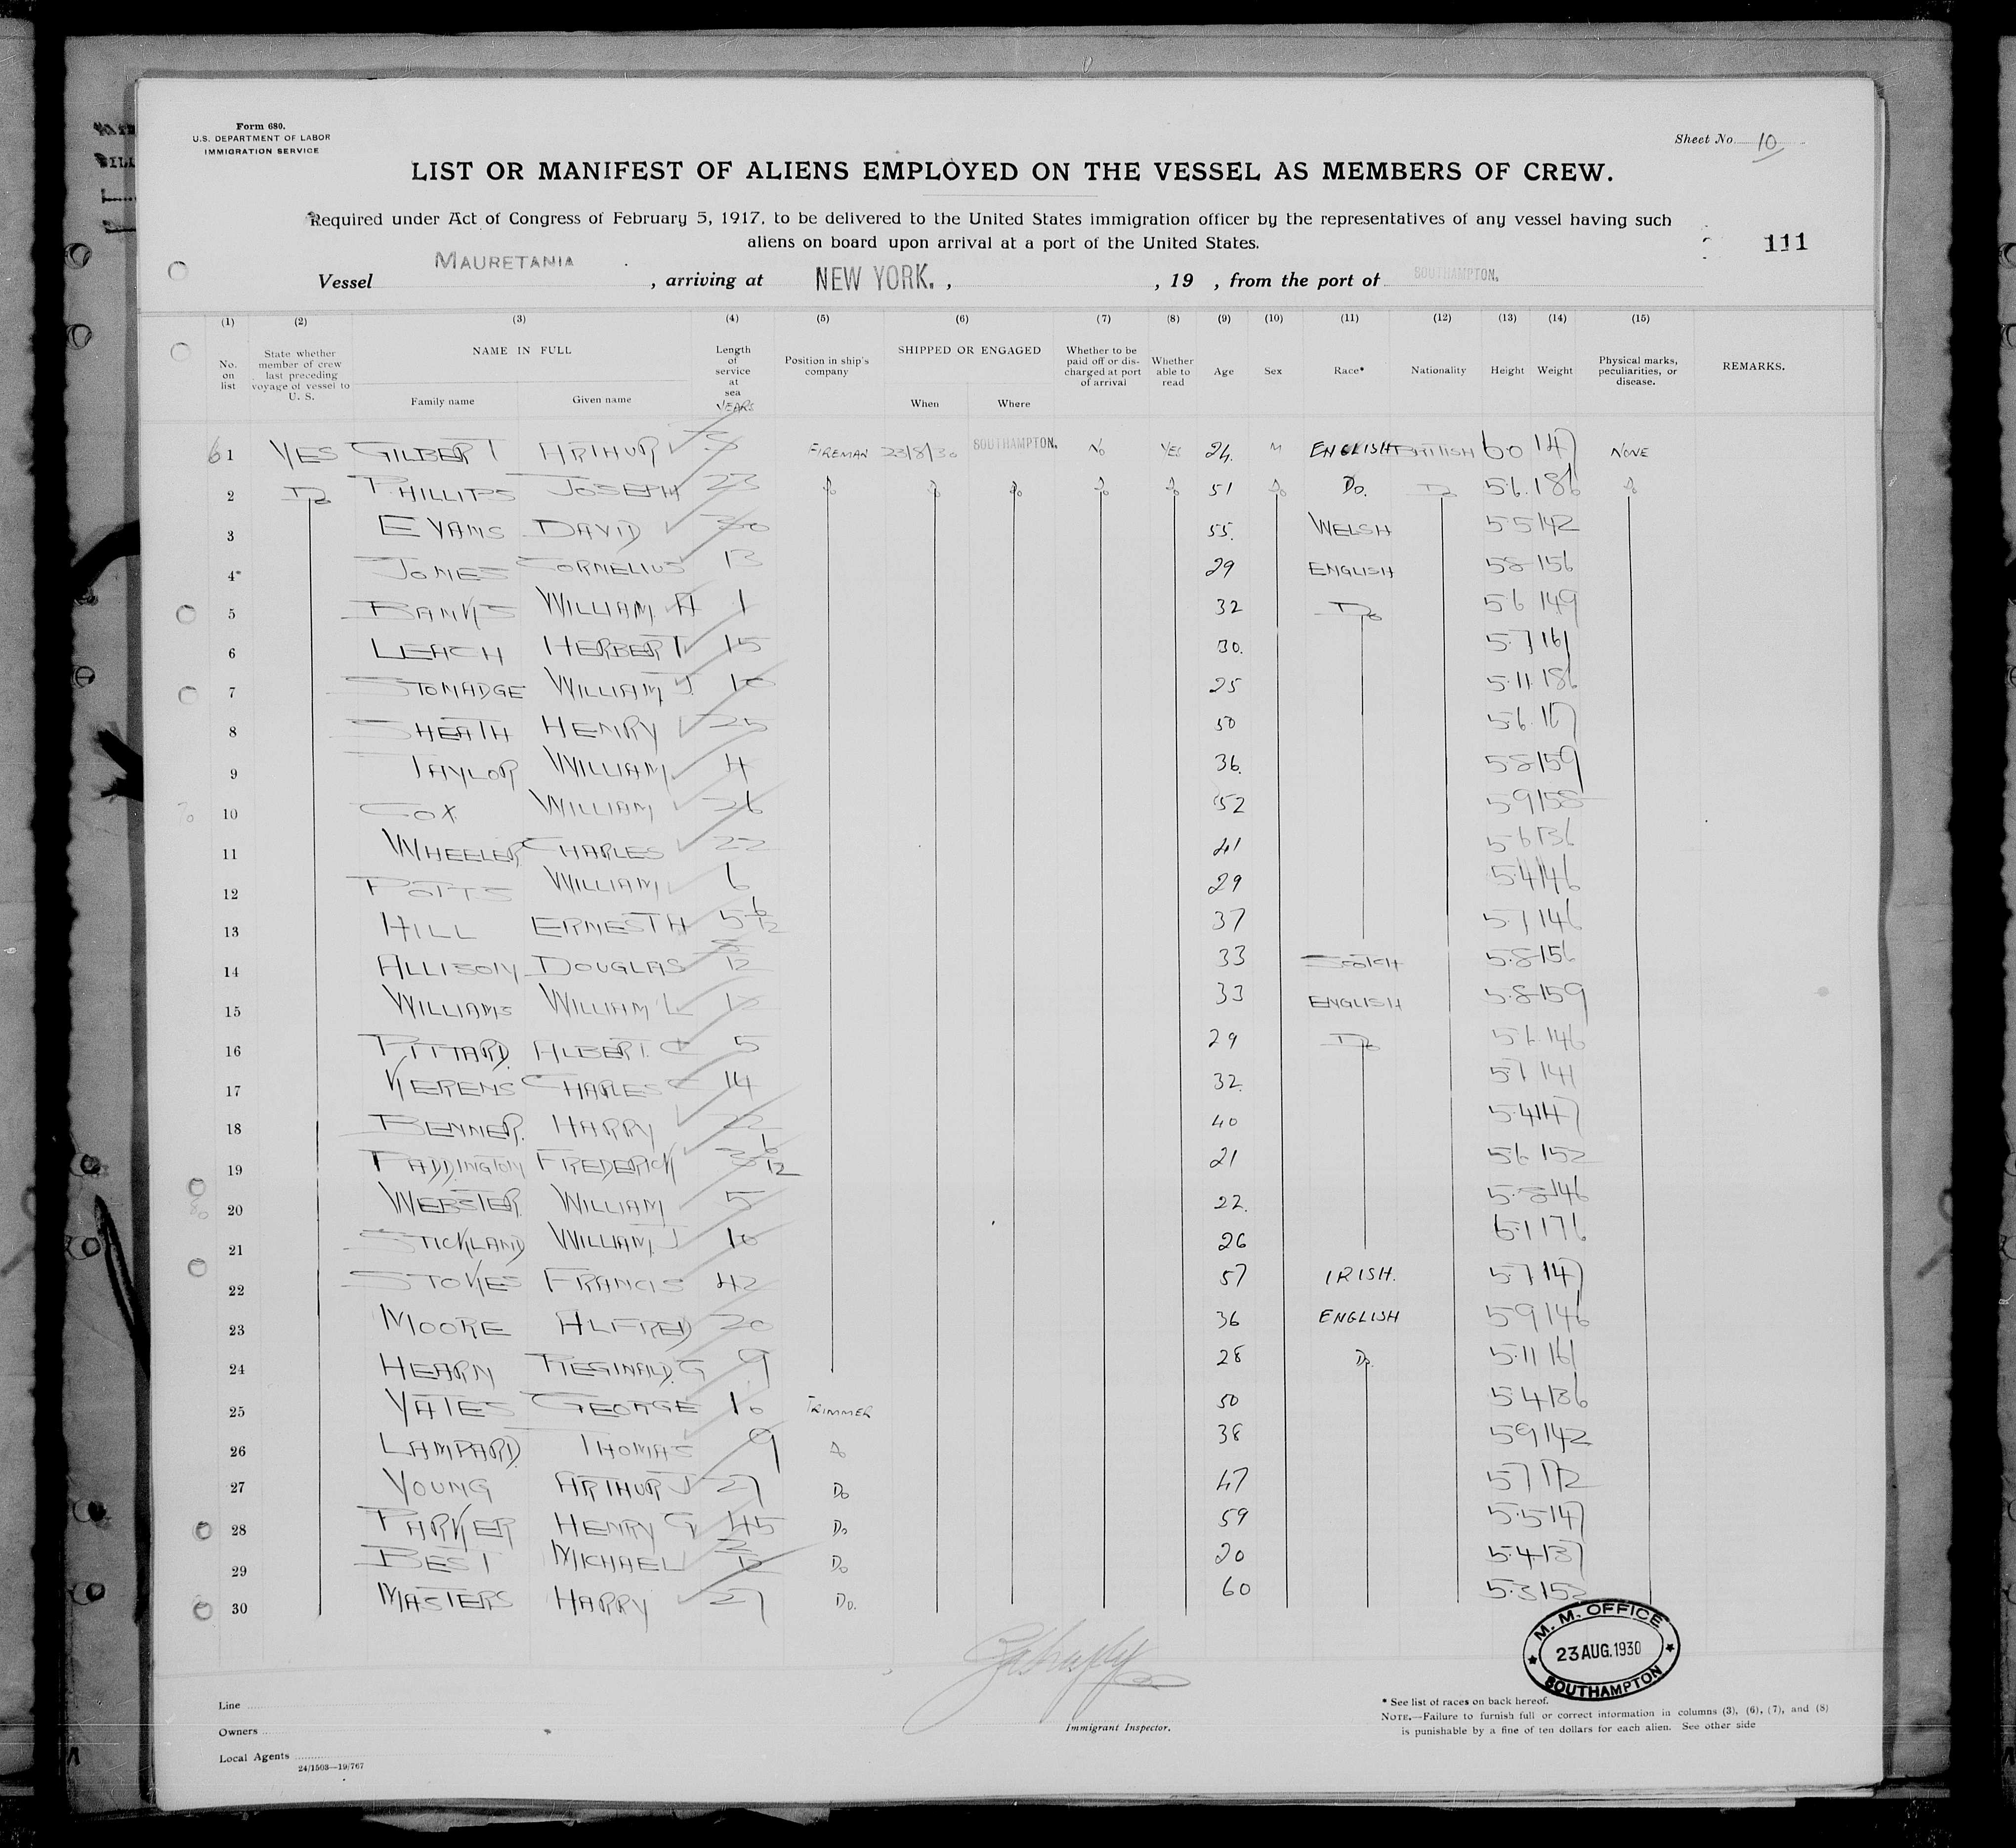 Form 680.
U.S. DEPARTMENT OF LABOR
IMMIGRATION SERVICE
Sheet No. 10
LIST OR MANIFEST OF ALIENS EMPLOYED ON THE VESSEL AS MEMBERS OF CREW.
Required under Act of Congress of February 5, 1917, to be delivered to the United States immigration officer by the representatives of any vessel having such
aliens on board upon arrival at a port of the United States.
111
Vessel MAURETANIA, arriving at NEW YORK., , 19 , from the port of SOUTHAMPTON.
(1) (2) (3) (4) (5) (6) (7) (8) (9) (10) (11) (12) (13) (14) (15)
No. on list State whether member of crew last preceding voyage of vessel to U. S. NAME IN FULL Family name Given name Length of service at sea YEARS Position in ship's company SHIPPED OR ENGAGED When Where Whether to be paid off or discharged at port of arrival Whether able to read Age Sex Race* Nationality Height Weight Physical marks, peculiarities, or disease. REMARKS.
1 YES GILBERT ARTHUR 5 FIREMAN 23/8/30 SOUTHAMPTON. NO YES 24. M ENGLISH BRITISH 60 147 NONE
2 Do PHILLIPS JOSEPH 23 Do Do Do Do Do 51 Do Do. Do 5.6. 186 Do
3 EVANS DAVID 30 55. WELSH 5 5 142
4 JONES CORNELIUS 13 29 ENGLISH 58 156
5 BANKS WILLIAM A 1 32 Do 5 6 149
6 LEACH HERBERT 15 30. 5.7 161
7 STONADGE WILLIAM J 10 25 5.11 186
8 SHEATH HENRY 25 50 5.6. 167
9 TAYLOR WILLIAM 4 36. 58 159
10 COX WILLIAM 26 52 59 158
11 WHEELER CHARLES 22 41 5 6 136
12 POTTS WILLIAM 6 29 5.4 146
13 HILL ERNEST H 5 6/12 37 5.7 146
14 ALLISON DOUGLAS 12 33 SCOTCH 5.8 156
15 WILLIAMS WILLIAM L 33 ENGLISH 5.8 159
16 PITTARD. ALBERT. C 5 29 Do 5.6. 146
17 KERENS CHARLES C 14 32. 5.7 141
18 BENNER. HARRY 22 40 5.4 147
19 PADDINGTON FREDERICK 3 6/12 21 56 152
20 WEBSTER WILLIAM 5 22. 5.8 146
21 STICKLAND WILLIAM. J 10 26 6.1 176
22 STOKES FRANCIS 42 57 IRISH. 5.7 147
23 MOORE ALFRED 20 36 ENGLISH 59 146
24 HEARN REGINALD. G 9 28 Do. 5.11 161
25 YATES GEORGE 16 TRIMMER 50 54 136
26 LAMPARD. THOMAS 9 Do 38 59 142
27 YOUNG ARTHUR J 27 Do 47 57 172
28 PARKER HENRY G 45 Do 59 5.5 147
29 BEST MICHAEL Do 20 5.4 137
30 MASTERS HARRY 27 Do. 60 5.3 152
M. M. OFFICE
23 AUG. 1930
SOUTHAMPTON
Line
Owners
Local Agents
24/1503—19/767
Immigrant Inspector.
* See list of races on back hereof.
NOTE.—Failure to furnish full or correct information in columns (3), (6), (7), and (8)
is punishable by a fine of ten dollars for each alien. See other side